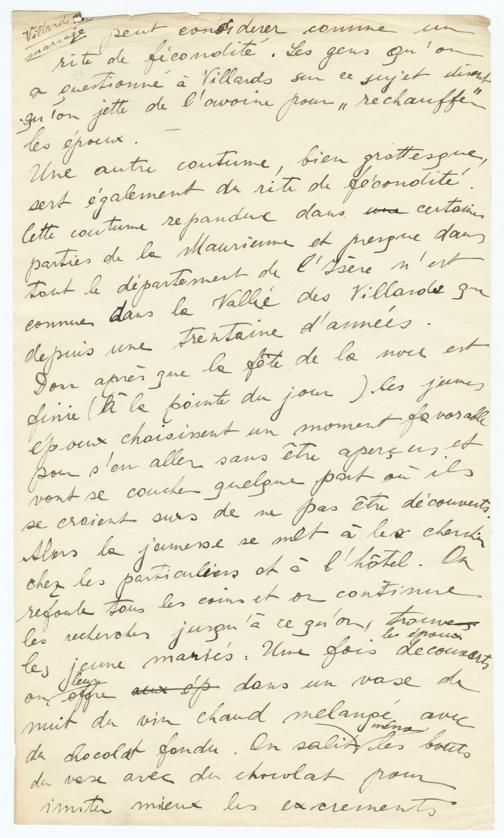 Villards
mariage
peut considerer comme un
rite de fécondité. Les gens qu'on
a questionné à Villards sur ce sujet disent
qu'on jette de l'avoine pour „rechauffer"
les époux. —
Une autre coutume, bien grottesque,
sert également du rite de fécondité.
Cette coutume repandue dans une certaines
parties de la Maurienne et presque dans
tout le département de l'Isère n'est
connue dans la Vallée des Villards que
depuis une trentaine d'années.
Donc après que la fête de la noce est
finie (à la pointe du jour) les jeunes
époux choisissent un moment favorable
pour s'en aller sans être aperçus et
vont se coucher quelque part où ils
se croient surs de ne pas être découverts.
Alors la jeunesse se met à les chercher
chez les particuliers et à l'hôtel. On
refoule tous les coins et on continue
les recherches jusqu'à ce qu'on trouve
les jeune mariés. Une fois les époux découverts
on leur offre aux ép dans un vase de
nuit du vin chaud melangé avec
du chocolat fondu. On salit même les bouts
du vase avec du chocolat pour
imiter mieux les excrements